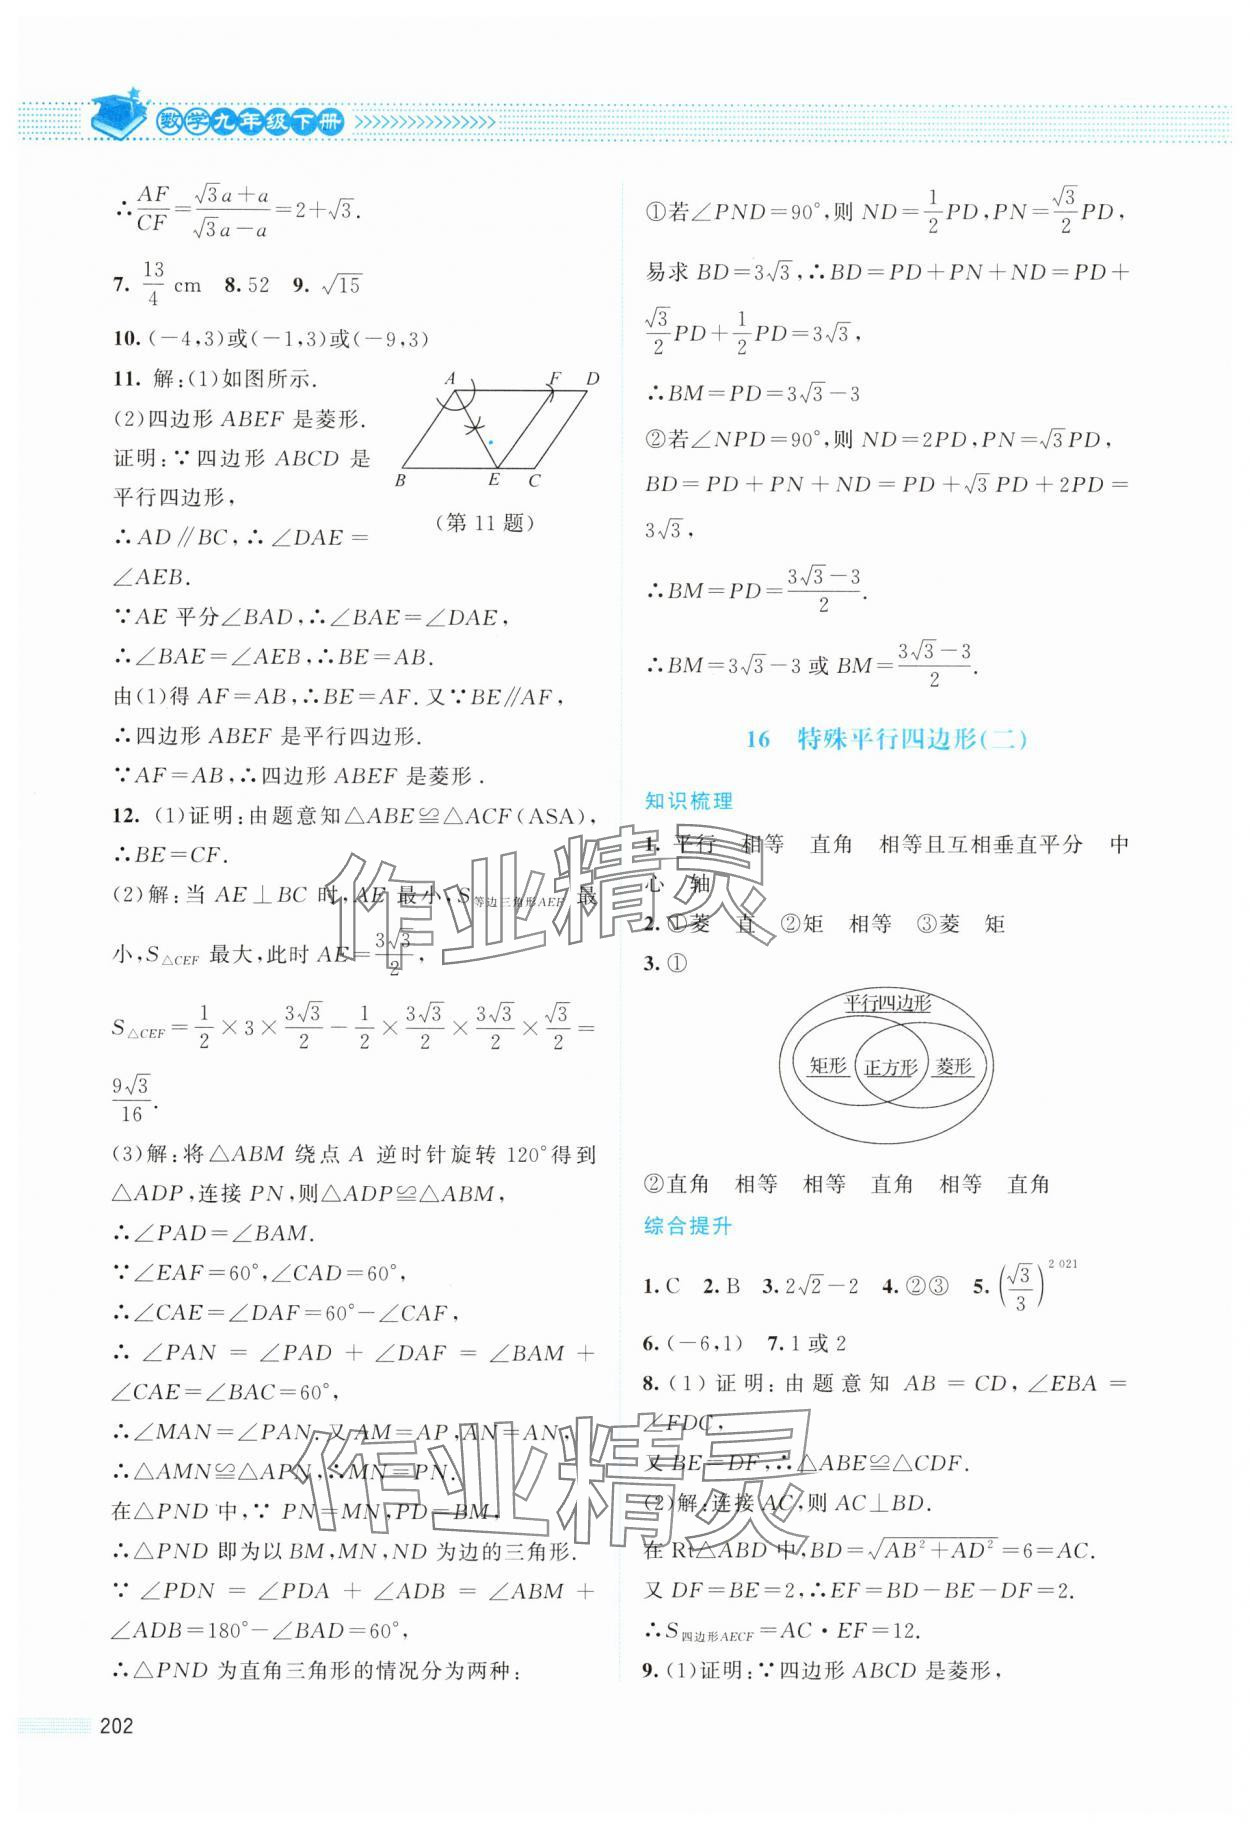 数学九年级下册
∴AF/CF=(√3a+a)/(√3a-a)=2+√3.
7. 13/4 cm 8. 52 9. √15
10. (-4,3)或(-1,3)或(-9,3)
11. 解:(1)如图所示.
(2)四边形 ABEF 是菱形.
证明:∵四边形 ABCD 是
平行四边形,
∴AD∥BC,∴∠DAE=
∠AEB.
A F D
B E C
(第 11 题)
∵AE 平分∠BAD,∴∠BAE=∠DAE,
∴∠BAE=∠AEB,∴BE=AB.
由(1)得 AF=AB,∴BE=AF.又∵BE∥AF,
∴四边形 ABEF 是平行四边形.
∵AF=AB,∴四边形 ABEF 是菱形.
12. (1)证明:由题意知△ABE≌△ACF(ASA),
∴BE=CF.
(2)解:当 AE⊥BC 时,AE 最小,S等边三角形AEF 最
小,S△CEF 最大,此时 AE=3√3/2,
S△CEF=1/2×3×3√3/2-1/2×3√3/2×3√3/2×√3/2=
9√3/16.
(3)解:将△ABM 绕点 A 逆时针旋转 120°得到
△ADP,连接 PN,则△ADP≌△ABM,
∴∠PAD=∠BAM.
∵∠EAF=60°,∠CAD=60°,
∴∠CAE=∠DAF=60°-∠CAF,
∴∠PAN=∠PAD+∠DAF=∠BAM+
∠CAE=∠BAC=60°,
∴∠MAN=∠PAN.又 AM=AP,AN=AN,
∴△AMN≌△APN,∴MN=PN.
在△PND 中,∵PN=MN,PD=BM,
∴△PND 即为以 BM,MN,ND 为边的三角形.
∵∠PDN=∠PDA+∠ADB=∠ABM+
∠ADB=180°-∠BAD=60°,
∴△PND 为直角三角形的情况分为两种:
①若∠PND=90°,则 ND=1/2PD,PN=√3/2PD,
易求 BD=3√3,∴BD=PD+PN+ND=PD+
√3/2PD+1/2PD=3√3,
∴BM=PD=3√3-3
②若∠NPD=90°,则 ND=2PD,PN=√3PD,
BD=PD+PN+ND=PD+√3PD+2PD=
3√3,
∴BM=PD=(3√3-3)/2.
∴BM=3√3-3 或 BM=(3√3-3)/2.
16 特殊平行四边形(二)
知识梳理
1. 平行 相等 直角 相等且互相垂直平分 中
心 轴
2. ①菱 直 ②矩 相等 ③菱 矩
3. ①
平行四边形
矩形 正方形 菱形
②直角 相等 相等 直角 相等 直角
综合提升
1. C 2. B 3. 2√2-2 4. ②③ 5. (√3/3)^2 021
6. (-6,1) 7. 1 或 2
8. (1)证明:由题意知 AB=CD,∠EBA=
∠FDC,
又 BE=DF,∴△ABE≌△CDF.
(2)解:连接 AC,则 AC⊥BD.
在 Rt△ABD 中,BD=√(AB²+AD²)=6=AC.
又 DF=BE=2,∴EF=BD-BE-DF=2.
∴S四边形AECF=AC·EF=12.
9. (1)证明:∵四边形 ABCD 是菱形,
作业精灵
作业精灵
202